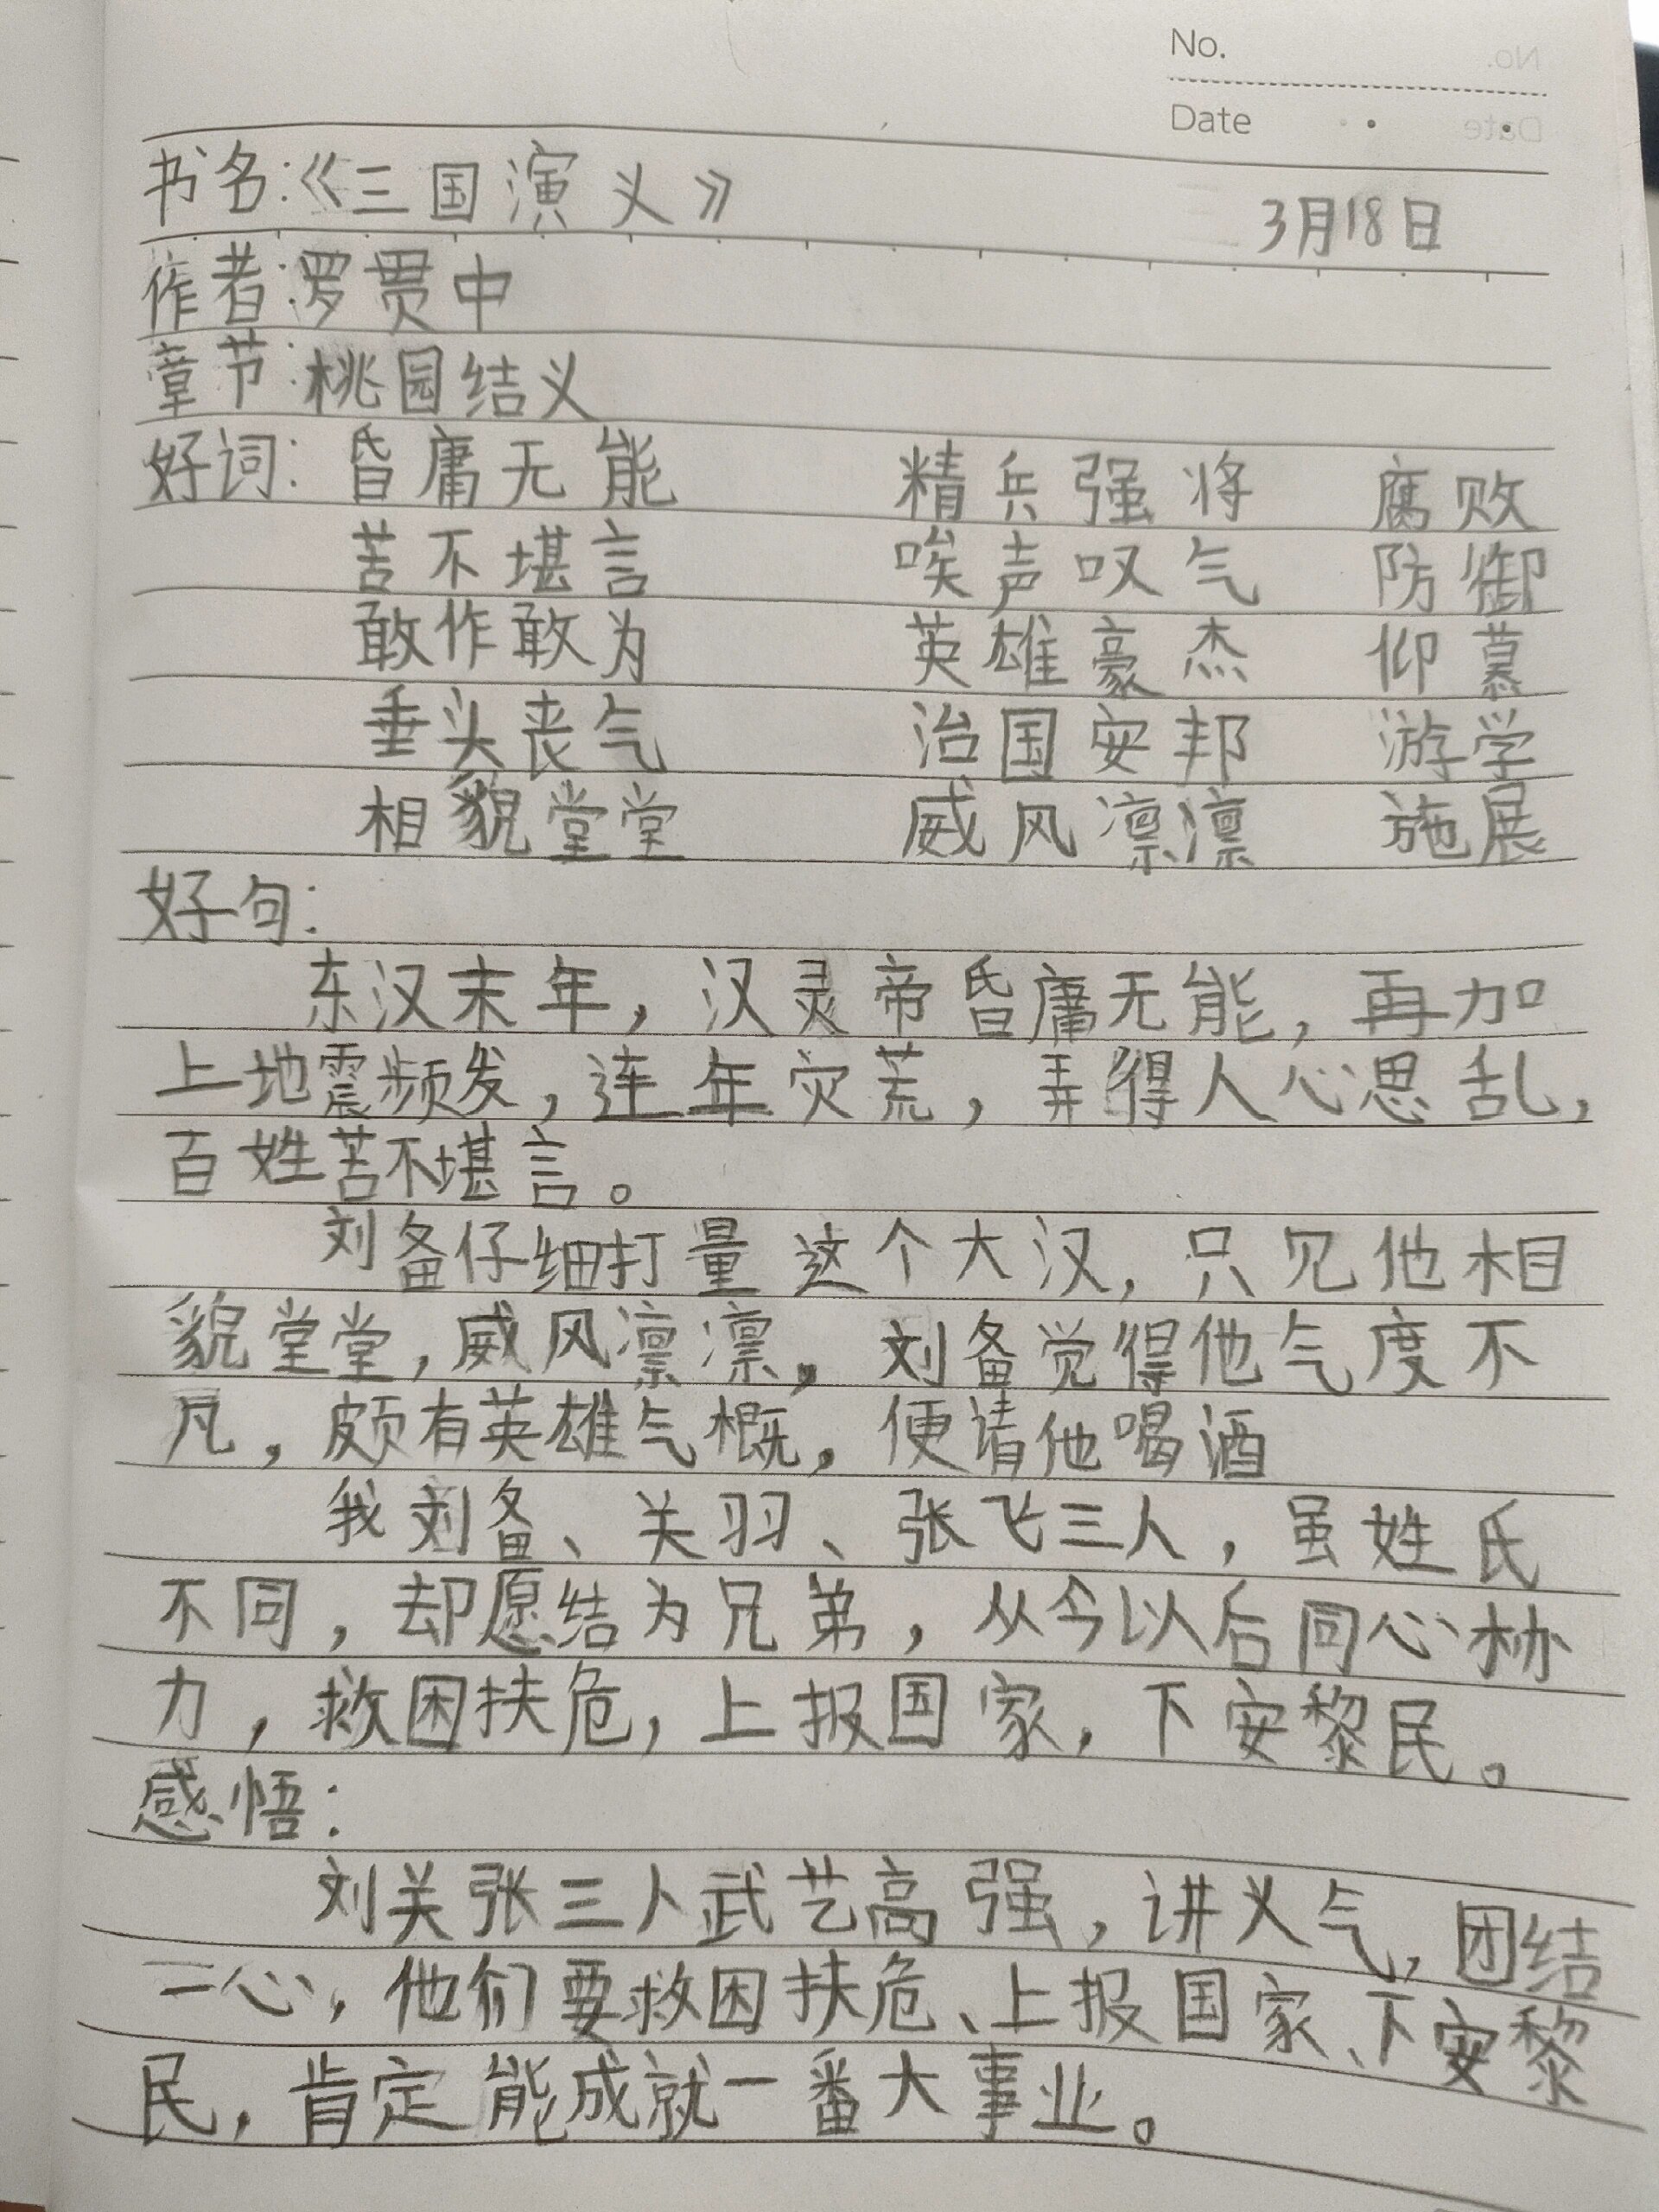 No.
Date
书名:《三国演义》 3月18日
作者:罗贯中
章节:桃园结义
好词: 昏庸无能 精兵强将 腐败
苦不堪言 唉声叹气 防御
敢作敢为 英雄豪杰 仰慕
垂头丧气 治国安邦 游学
相貌堂堂 威风凛凛 施展
好句:
东汉末年,汉灵帝昏庸无能,再加
上地震频发,连年灾荒,弄得人心思乱,
百姓苦不堪言。
刘备仔细打量这个大汉,只见他相
貌堂堂,威风凛凛,刘备觉得他气度不
凡,颇有英雄气概,便请他喝酒
我刘备、关羽、张飞三人,虽姓氏
不同,却愿结为兄弟,从今以后同心协
力,救困扶危,上报国家,下安黎民。
感悟:
刘关张三人武艺高强,讲义气,团结
一心,他们要救困扶危、上报国家、下安黎
民,肯定能成就一番大事业。